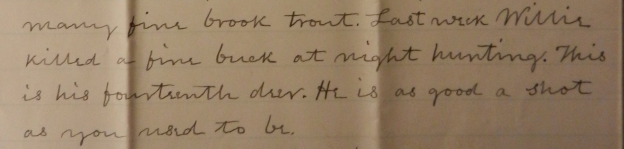 many fine brook trout. Last week Willie
killed a fine buck at night hunting. This
is his fourteenth deer. He is as good a shot
as you used to be.